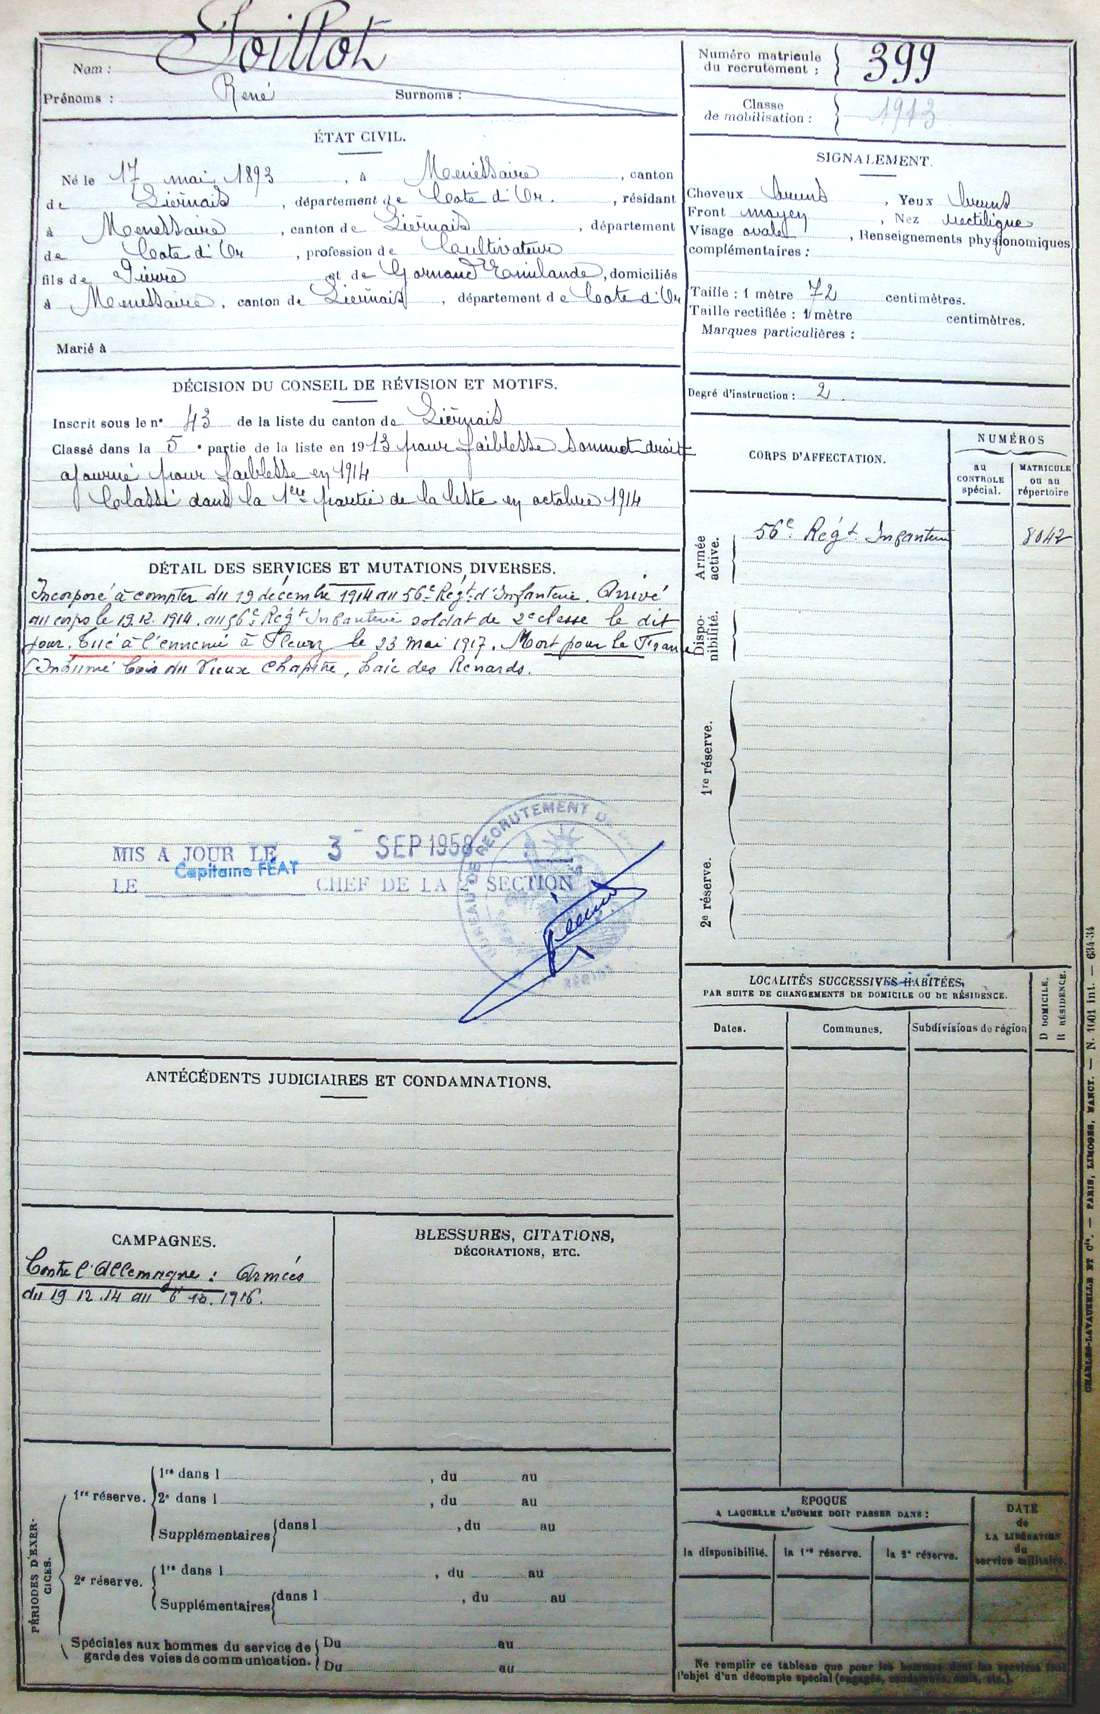 Nom : Joillot
Prénoms : René Surnoms :
Numéro matricule du recrutement : 399
Classe de mobilisation : 1913
ÉTAT CIVIL.
Né le 17 mai 1893, à Menessaire, canton
de Liernais, département de Cote d'Or, résidant
à Menessaire, canton de Liernais, département
de Cote d'Or, profession de Cultivateur
fils de Pierre et de Garnaud Emilande, domiciliés
à Menessaire, canton de Liernais, département de Cote d'Or
Marié à
SIGNALEMENT.
Cheveux bruns, Yeux bruns
Front moyen, Nez rectiligne
Visage ovale, Renseignements physionomiques
complémentaires :
Taille : 1 mètre 72 centimètres.
Taille rectifiée : 1 mètre centimètres.
Marques particulières :
Degré d'instruction : 2.
DÉCISION DU CONSEIL DE RÉVISION ET MOTIFS.
Inscrit sous le n° 43 de la liste du canton de Liernais
Classé dans la 5e partie de la liste en 1913 pour faiblesse sommet droit
ajourné pour faiblesse en 1914
Classé dans la 1ere partie de la liste en octobre 1914
CORPS D'AFFECTATION.
NUMÉROS
au CONTROLE spécial.
MATRICULE ou au répertoire
Armée active.
56e Régt Infanterie 8042
Dispo-nibilité.
1re réserve.
2e réserve.
DÉTAIL DES SERVICES ET MUTATIONS DIVERSES.
Incorporé à compter du 19 décembre 1914 au 56e Régt d'Infanterie. Arrivé
au corps le 19.12.1914. au 56e Régt Infanterie soldat de 2e classe le dit
jour. Tué à l'ennemi à Fleury le 23 mai 1917. Mort pour la France
Inhumé bois du Vieux Chapitre, Haie des Renards.
MIS A JOUR LE 3 SEP 1958
Capitaine FEAT
LE CHEF DE LA 2e SECTION
BUREAU DE RECRUTEMENT DE
LOCALITÉS SUCCESSIVES HABITÉES,
PAR SUITE DE CHANGEMENTS DE DOMICILE OU DE RÉSIDENCE.
Dates. Communes. Subdivisions de région
D DOMICILE.
R RÉSIDENCE.
ANTÉCÉDENTS JUDICIAIRES ET CONDAMNATIONS.
CAMPAGNES.
Contre l'Allemagne : Armées
du 19 12.14 au 6 10.1916.
BLESSURES, CITATIONS,
DÉCORATIONS, ETC.
PÉRIODES D'EXER-CICES.
1re réserve. 1re dans l , du au
2e dans l , du au
Supplémentaires dans l , du au
2e réserve. 1re dans l , du au
Supplémentaires dans l , du au
Spéciales aux hommes du service de garde des voies de communication. Du au
Du au
ÉPOQUE
A LAQUELLE L'HOMME DOIT PASSER DANS :
la disponibilité. la 1re réserve. la 2e réserve.
DATE
de
LA LIBÉRATION
du
service militaire.
Ne remplir ce tableau que pour les hommes dont les services font
l'objet d'un décompte spécial (engagés, condamnés, omis, etc.).
CHARLES-LAVAUZELLE ET Cie. — PARIS, LIMOGES, NANCY. — N. 1001 int. — 634-34